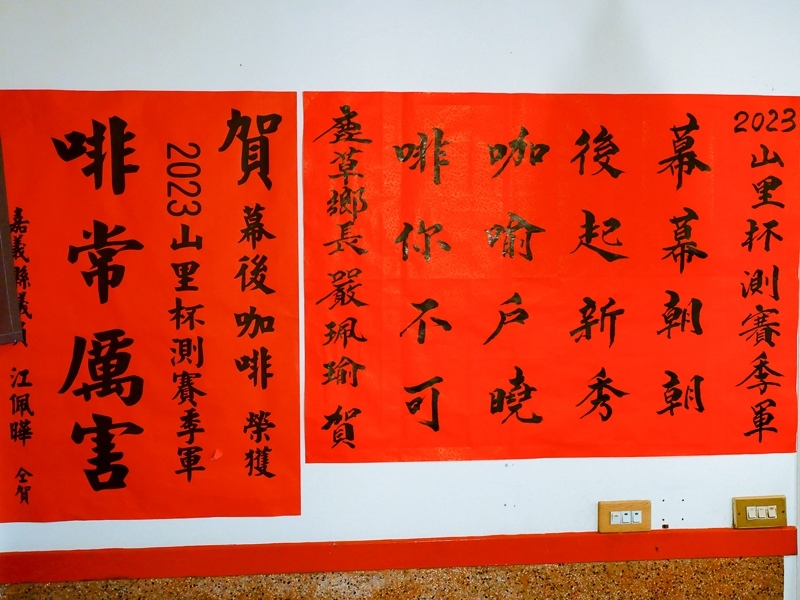 2023山里杯測賽季軍
幕幕朝朝
後起新秀
咖喻戶曉
啡你不可
鹿草鄉長嚴珮瑜賀
賀幕後咖啡 榮獲
2023山里杯測賽季軍
啡常厲害
嘉義縣議員 江佩曄 仝賀